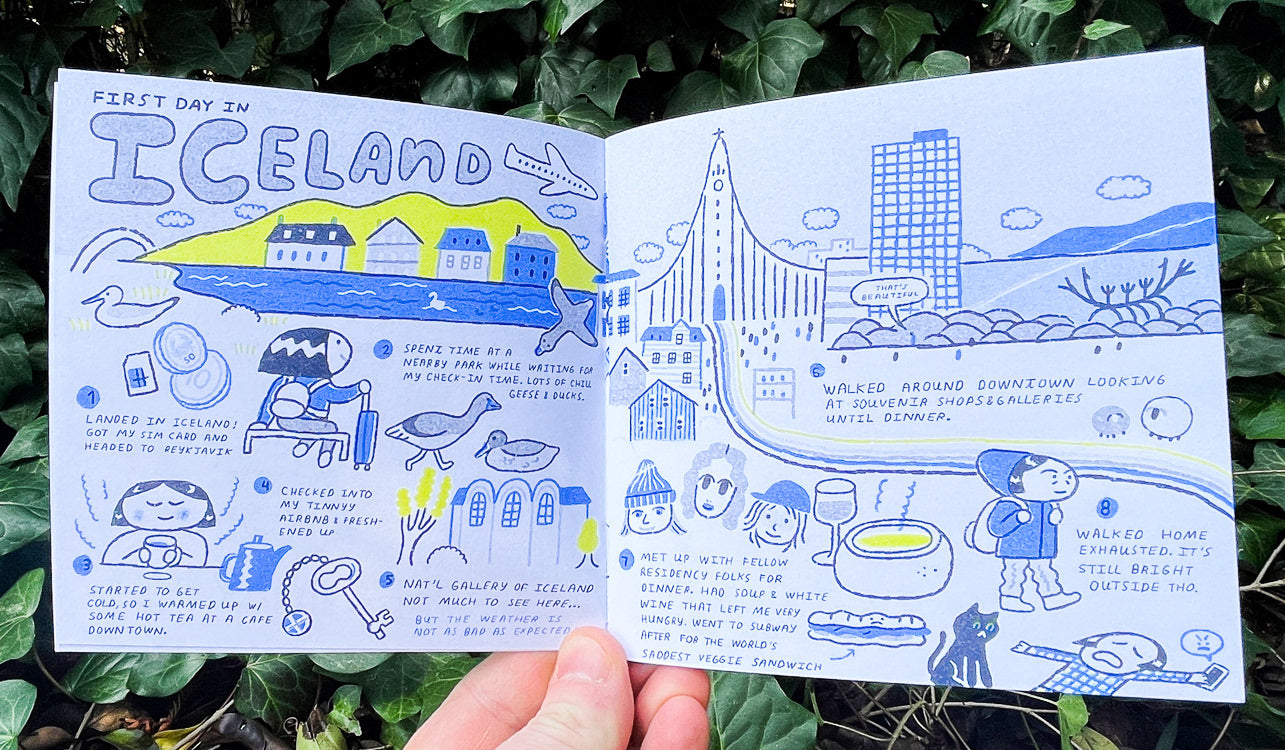 FIRST DAY IN
ICELAND
1
LANDED IN ICELAND!
GOT MY SIM CARD AND
HEADED TO REYKJAVIK
50
2
SPENT TIME AT A
NEARBY PARK WHILE WAITING FOR
MY CHECK-IN TIME. LOTS OF CHILL
GEESE & DUCKS.
3
STARTED TO GET
COLD, SO I WARMED UP W/
SOME HOT TEA AT A CAFE
DOWNTOWN.
4
CHECKED INTO
MY TINNYY
AIRBNB & FRESH-
ENED UP
5
NAT'L GALLERY OF ICELAND
NOT MUCH TO SEE HERE...
BUT THE WEATHER IS
NOT AS BAD AS EXPECTED
THAT'S
BEAUTIFUL
6
WALKED AROUND DOWNTOWN LOOKING
AT SOUVENIR SHOPS & GALLERIES
UNTIL DINNER.
7
MET UP WITH FELLOW
RESIDENCY FOLKS FOR
DINNER. HAD SOUP & WHITE
WINE THAT LEFT ME VERY
HUNGRY. WENT TO SUBWAY
AFTER FOR THE WORLD'S
SADDEST VEGGIE SANDWICH
8
WALKED HOME
EXHAUSTED. IT'S
STILL BRIGHT
OUTSIDE THO.